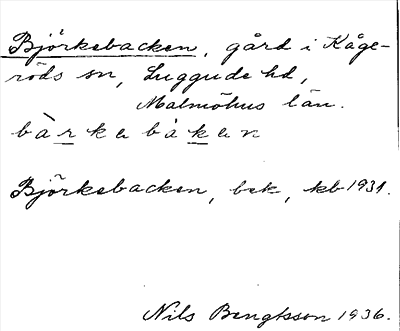 Björkebacken, gård i Kåge-
röds sn, Luggude hd,
Malmöhus län.
bàrkebáken
Björkebacken, bek, kb 1931.
Nils Bengtsson 1936.